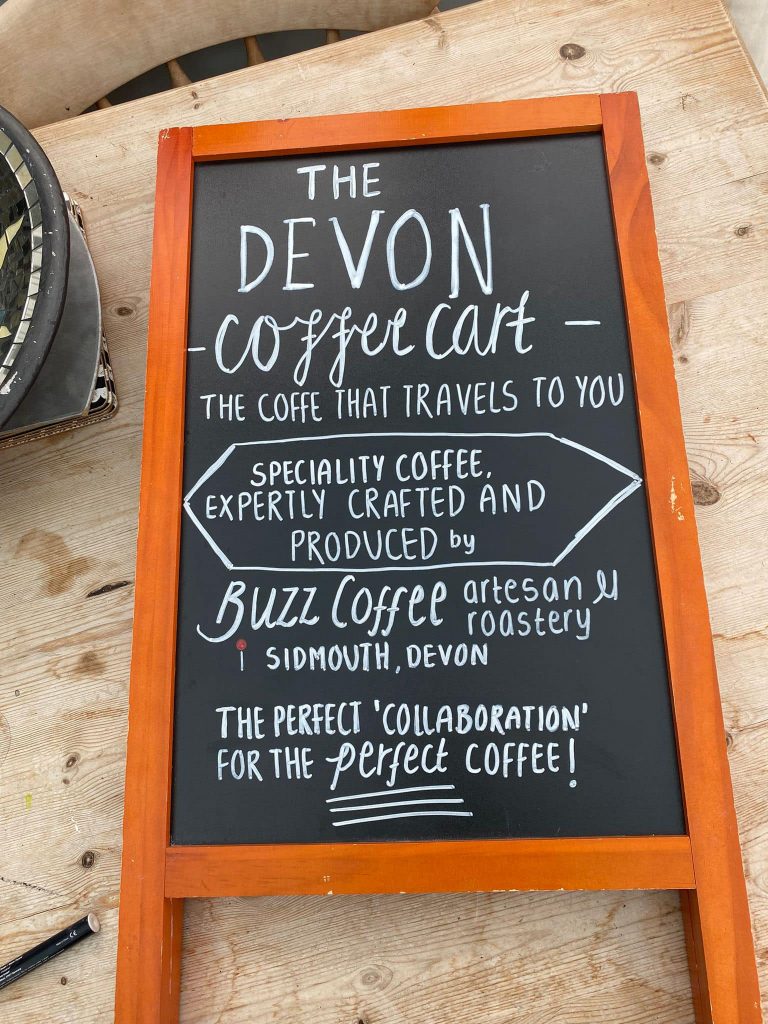 THE
DEVON
- Coffee Cart -
THE COFFE THAT TRAVELS TO YOU
SPECIALITY COFFEE,
EXPERTLY CRAFTED AND
PRODUCED by
Buzz Coffee artesan
roastery
SIDMOUTH, DEVON
THE PERFECT 'COLLABORATION'
FOR THE perfect COFFEE!